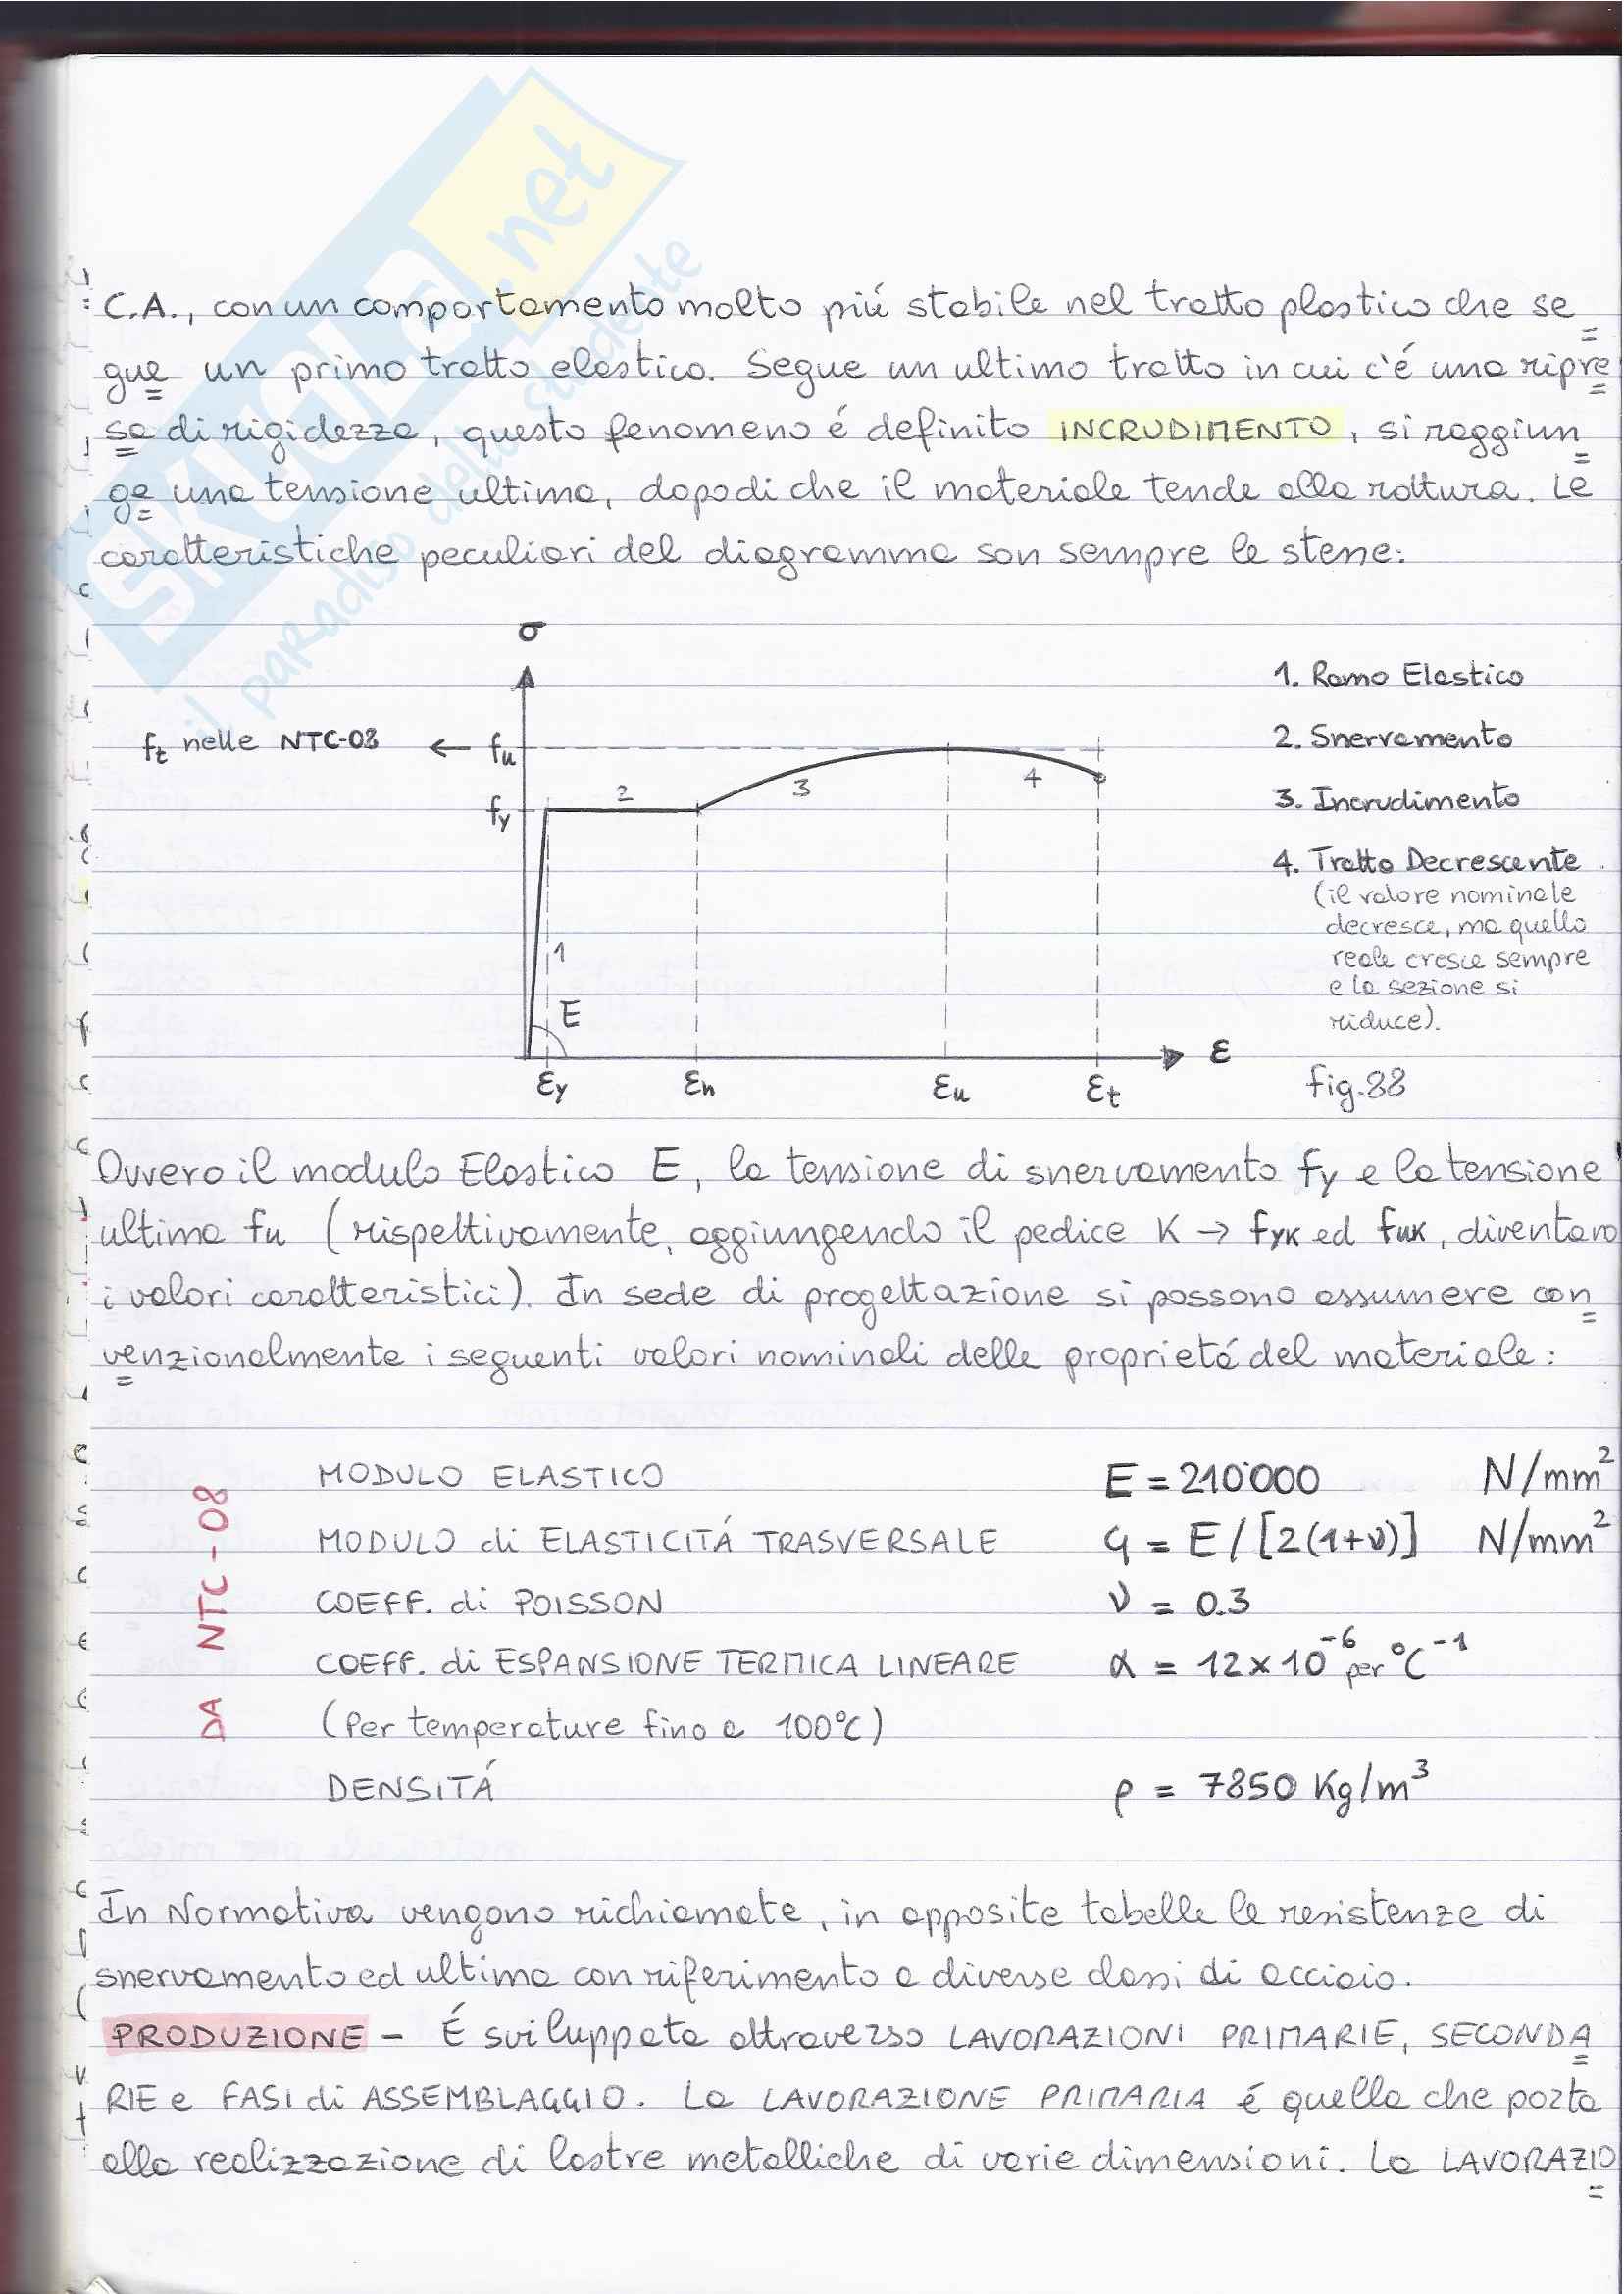 C.A., con un comportamento molto piú stabile nel tratto plastico che se
gue un primo tratto elastico. Segue un ultimo tratto in cui c'é una ripre
sa di rigidezza, questo fenomeno é definito INCRUDIMENTO, si raggiun
ge una tensione ultima, dopodi che il materiale tende alla rottura. Le
caratteristiche peculiari del diagramma son sempre le stesse:
σ
ft nelle NTC-08 ← fu
fy
1
2
3
4
E
εy εh εu εt
ε
1. Ramo Elastico
2. Snervamento
3. Incrudimento
4. Tratto Decrescente
(il valore nominale
decresce, ma quello
reale cresce sempre
e la sezione si
riduce).
fig.88
Ovvero il modulo Elastico E, la tensione di snervamento fy e la tensione
ultima fu (rispettivamente, aggiungendo il pedice K → fyk ed fuk, diventano
i valori caratteristici). In sede di progettazione si possono assumere con
venzionalmente i seguenti valori nominali delle proprietá del materiale:
DA NTC-08
MODULO ELASTICO E = 210'000 N/mm²
MODULO di ELASTICITÁ TRASVERSALE G = E/[2(1+ν)] N/mm²
COEFF. di POISSON ν = 0.3
COEFF. di ESPANSIONE TERMICA LINEARE α = 12×10⁻⁶ per °C⁻¹
(Per temperature fino a 100°C)
DENSITÁ ρ = 7850 Kg/m³
In Normativa vengono richiamate, in apposite tabelle le resistenze di
snervamento ed ultima con riferimento a diverse classi di acciaio.
PRODUZIONE – É sviluppata attraverso LAVORAZIONI PRIMARIE, SECONDA
RIE e FASI di ASSEMBLAGGIO. La LAVORAZIONE PRIMARIA é quella che porta
alla realizzazione di lastre metalliche di varie dimensioni. La LAVORAZIO
SKUOLA.net
il paradiso dello studente